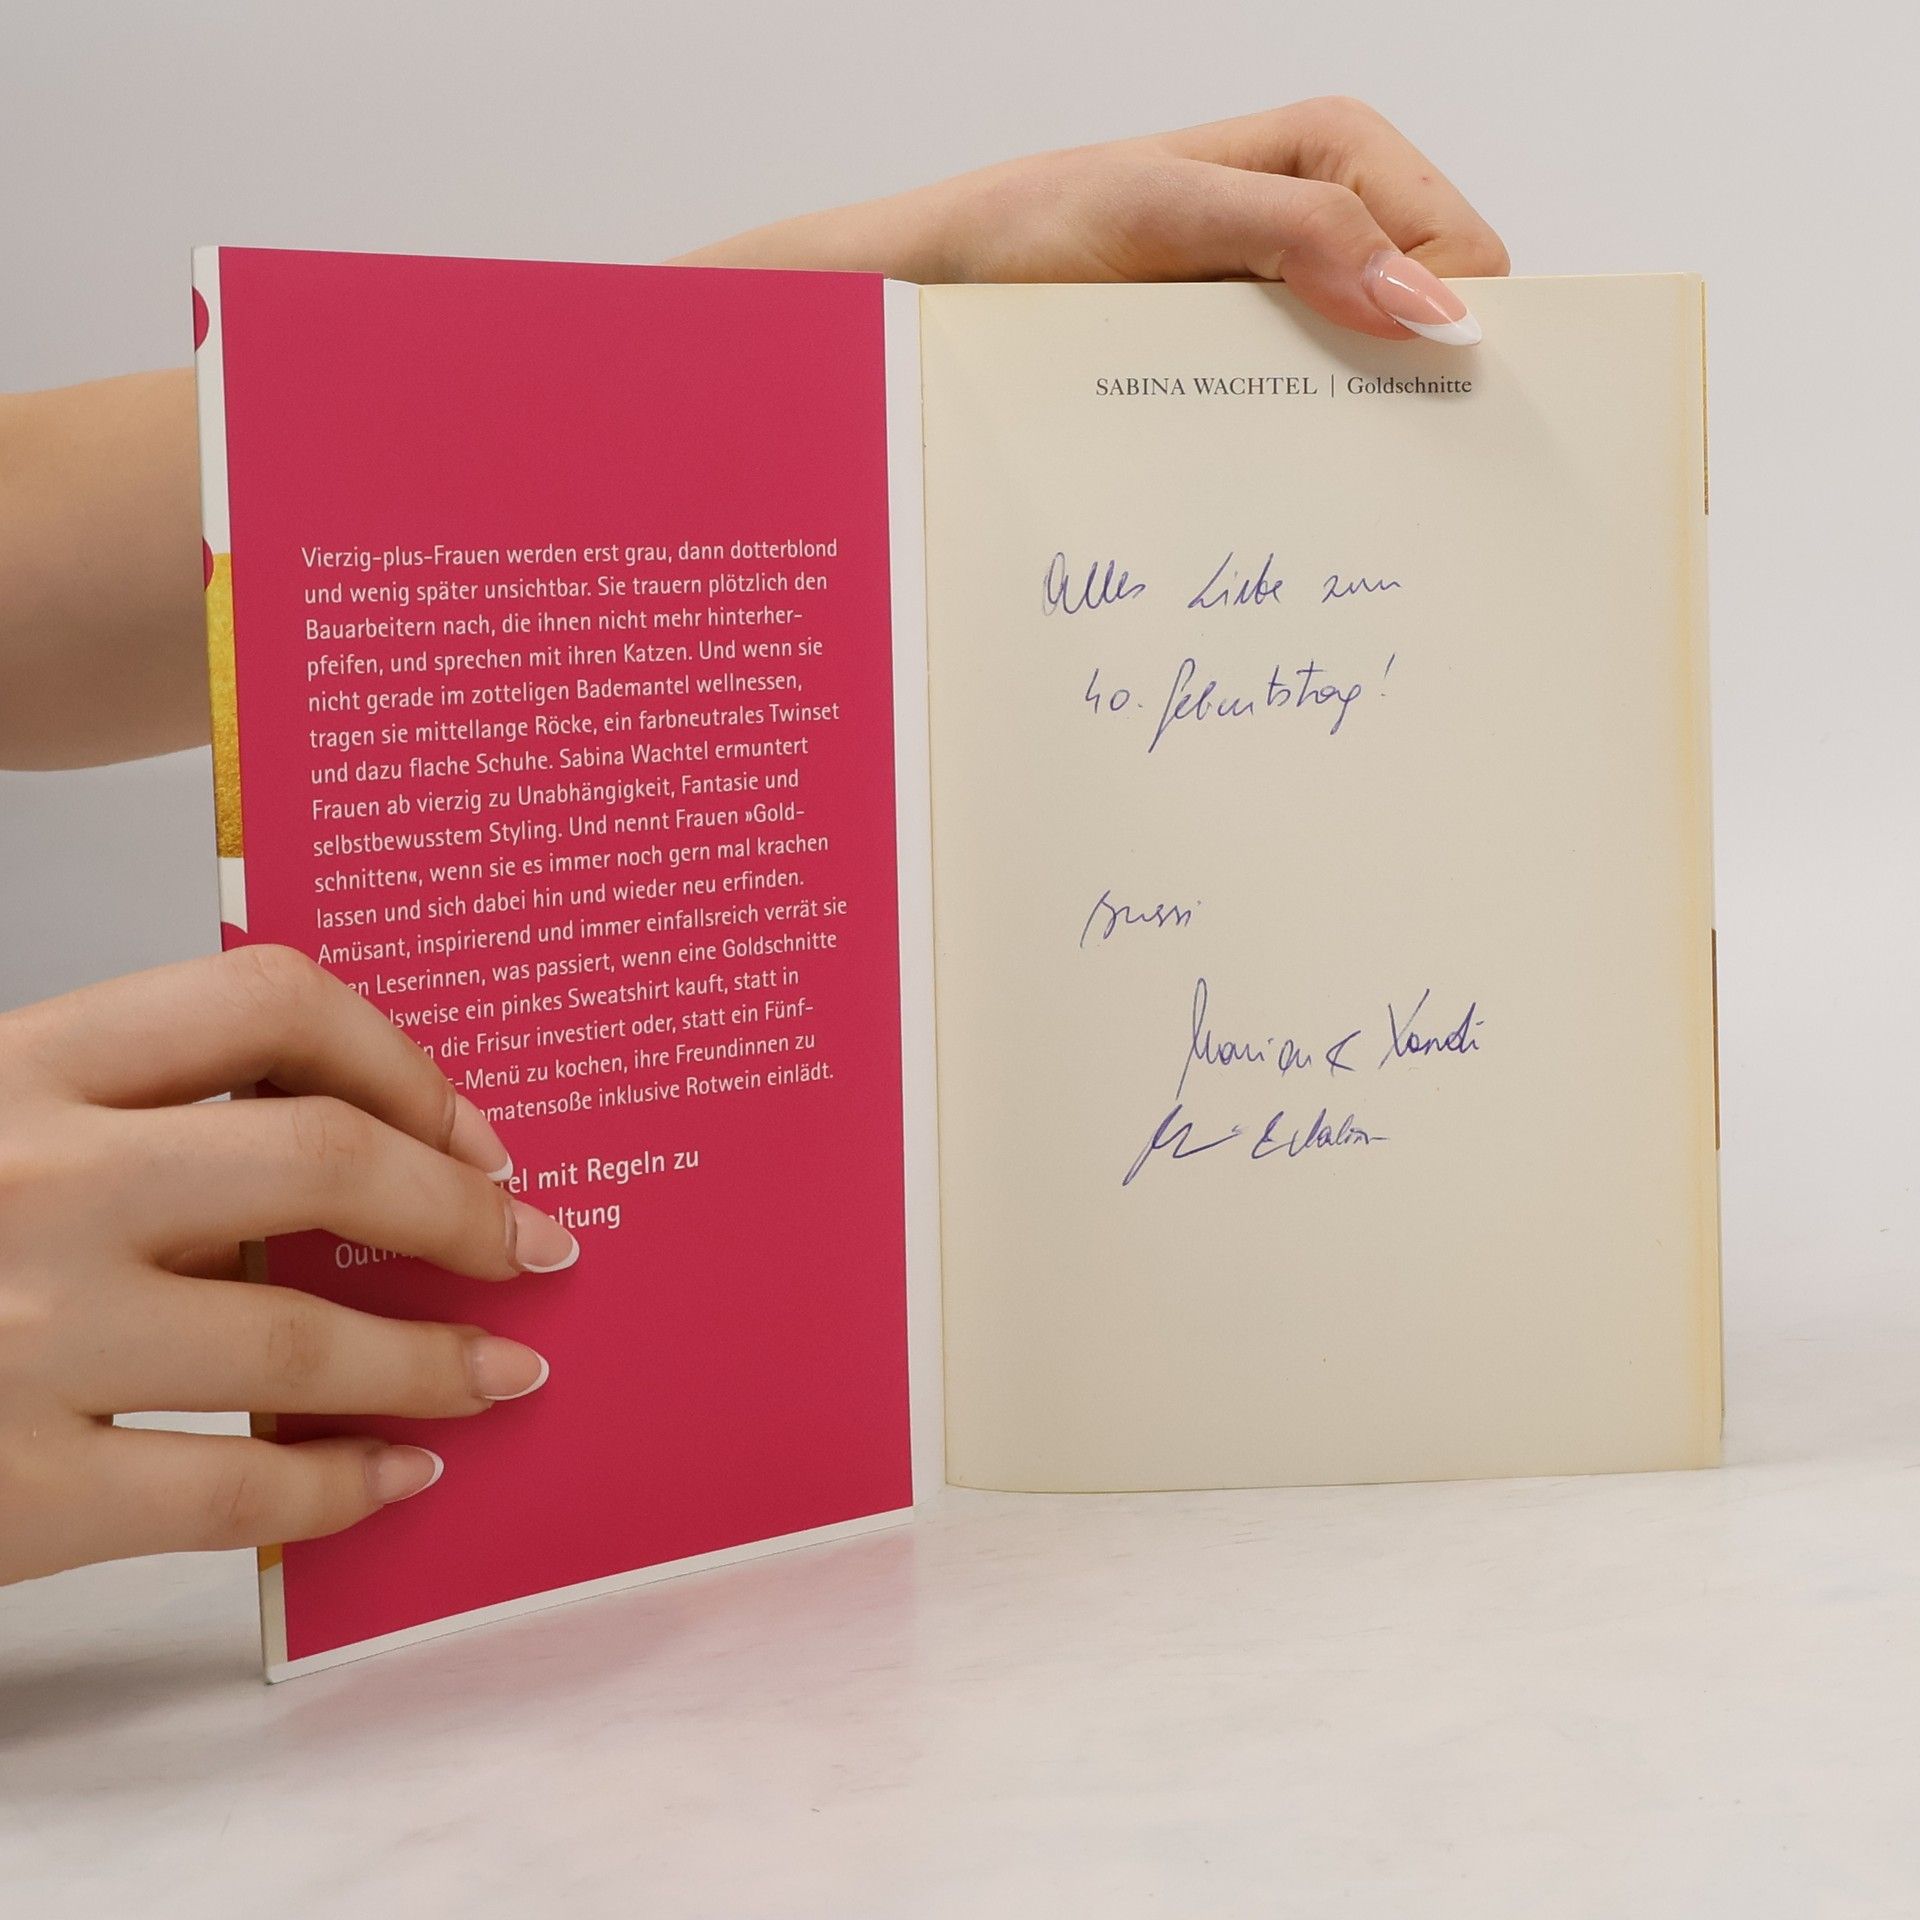 Vierzig-plus-Frauen werden erst grau, dann dotterblond
und wenig später unsichtbar. Sie trauern plötzlich den
Bauarbeitern nach, die ihnen nicht mehr hinterher-
pfeifen, und sprechen mit ihren Katzen. Und wenn sie
nicht gerade im zotteligen Bademantel wellnessen,
tragen sie mittellange Röcke, ein farbneutrales Twinset
und dazu flache Schuhe. Sabina Wachtel ermuntert
Frauen ab vierzig zu Unabhängigkeit, Fantasie und
selbstbewusstem Styling. Und nennt Frauen »Gold-
schnitten«, wenn sie es immer noch gern mal krachen
lassen und sich dabei hin und wieder neu erfinden.
Amüsant, inspirierend und immer einfallsreich verrät sie
Leserinnen, was passiert, wenn eine Goldschnitte
ein pinkes Sweatshirt kauft, statt in
die Frisur investiert oder, statt ein Fünf-
-Menü zu kochen, ihre Freundinnen zu
inklusive Rotwein einlädt.
mit Regeln zu
SABINA WACHTEL | Goldschnitte
Alles Liebe zum
40. Geburtstag!
Bussi
Marion & Xandi